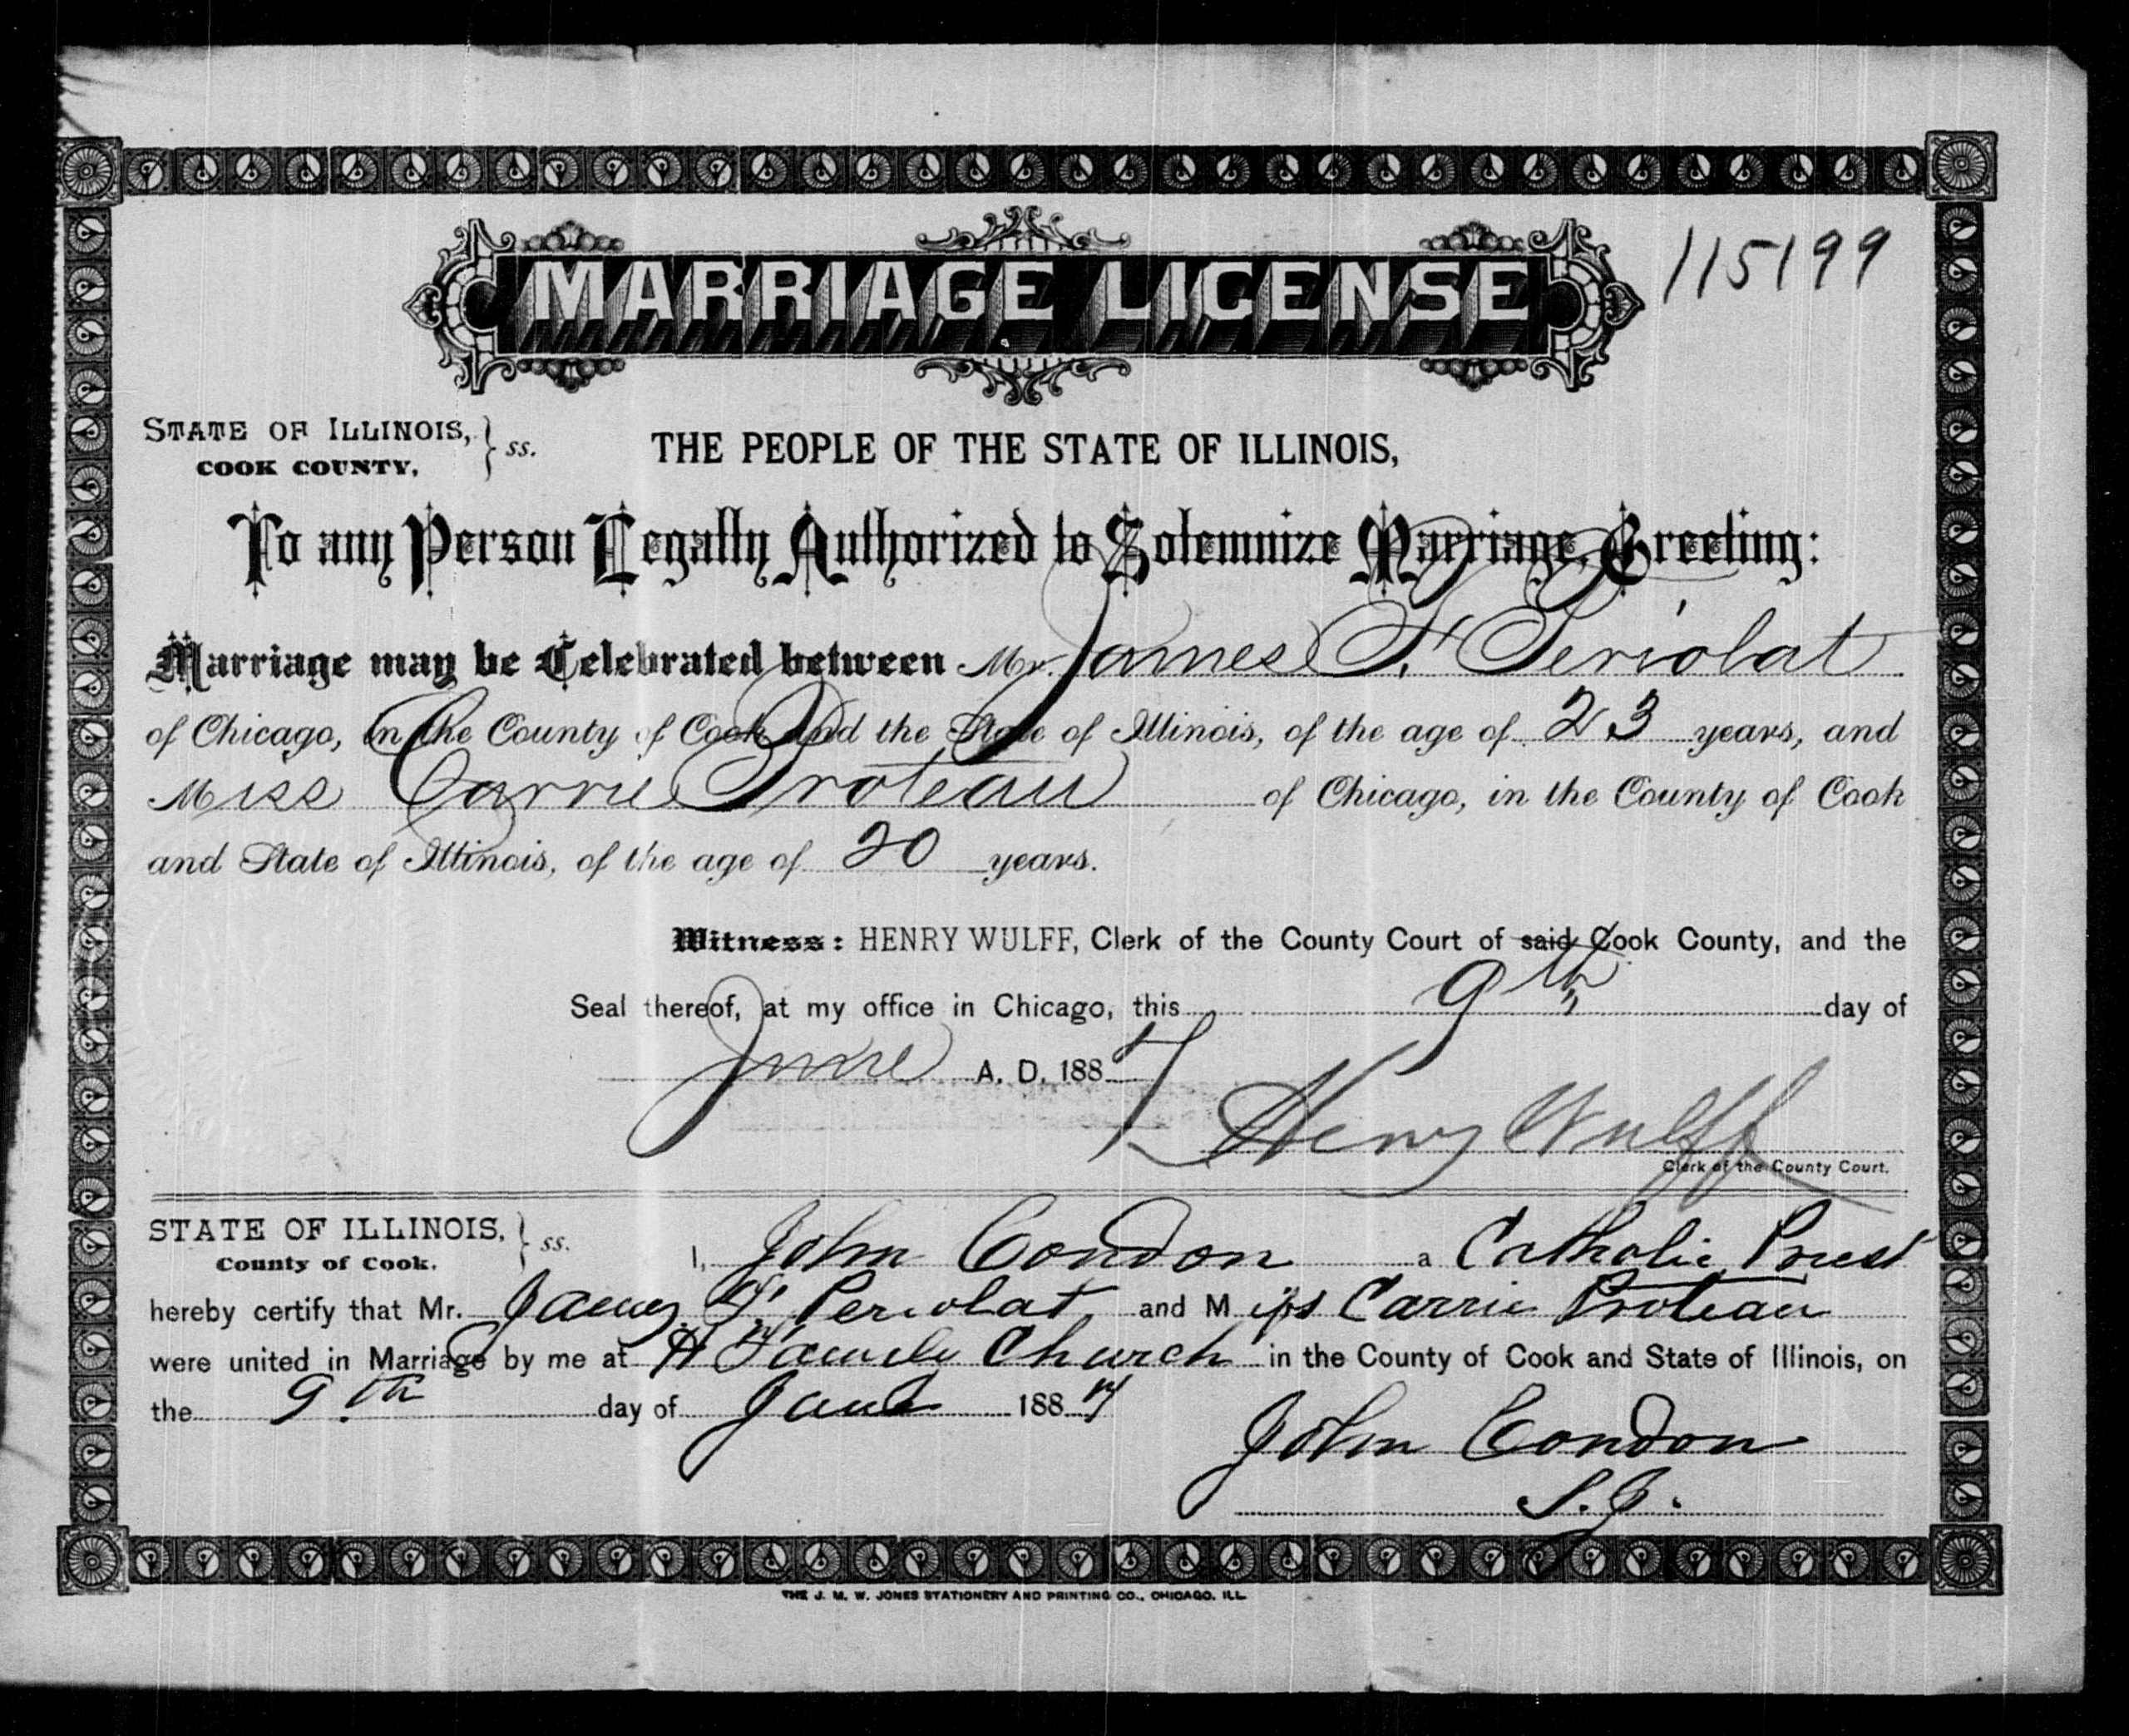 115199
MARRIAGE LICENSE
STATE OF ILLINOIS, } ss.
COOK COUNTY,
THE PEOPLE OF THE STATE OF ILLINOIS,
To any Person Legally Authorized to Solemnize Marriage, Greeting:
Marriage may be Celebrated between Mr. James F. Periolat
of Chicago, in the County of Cook and the State of Illinois, of the age of 23 years, and
Miss Carrie Proteau of Chicago, in the County of Cook
and State of Illinois, of the age of 20 years.
Witness: HENRY WULFF, Clerk of the County Court of said Cook County, and the
Seal thereof, at my office in Chicago, this 9th day of
June A. D. 1887
Henry Wulff
Clerk of the County Court.
STATE OF ILLINOIS, } ss.
County of Cook.
I, John Condon a Catholic Priest
hereby certify that Mr. James F. Periolat and Miss Carrie Proteau
were united in Marriage by me at H Family Church in the County of Cook and State of Illinois, on
the 9th day of June 1887
John Condon
S.J.
THE J. M. W. JONES STATIONERY AND PRINTING CO., CHICAGO, ILL